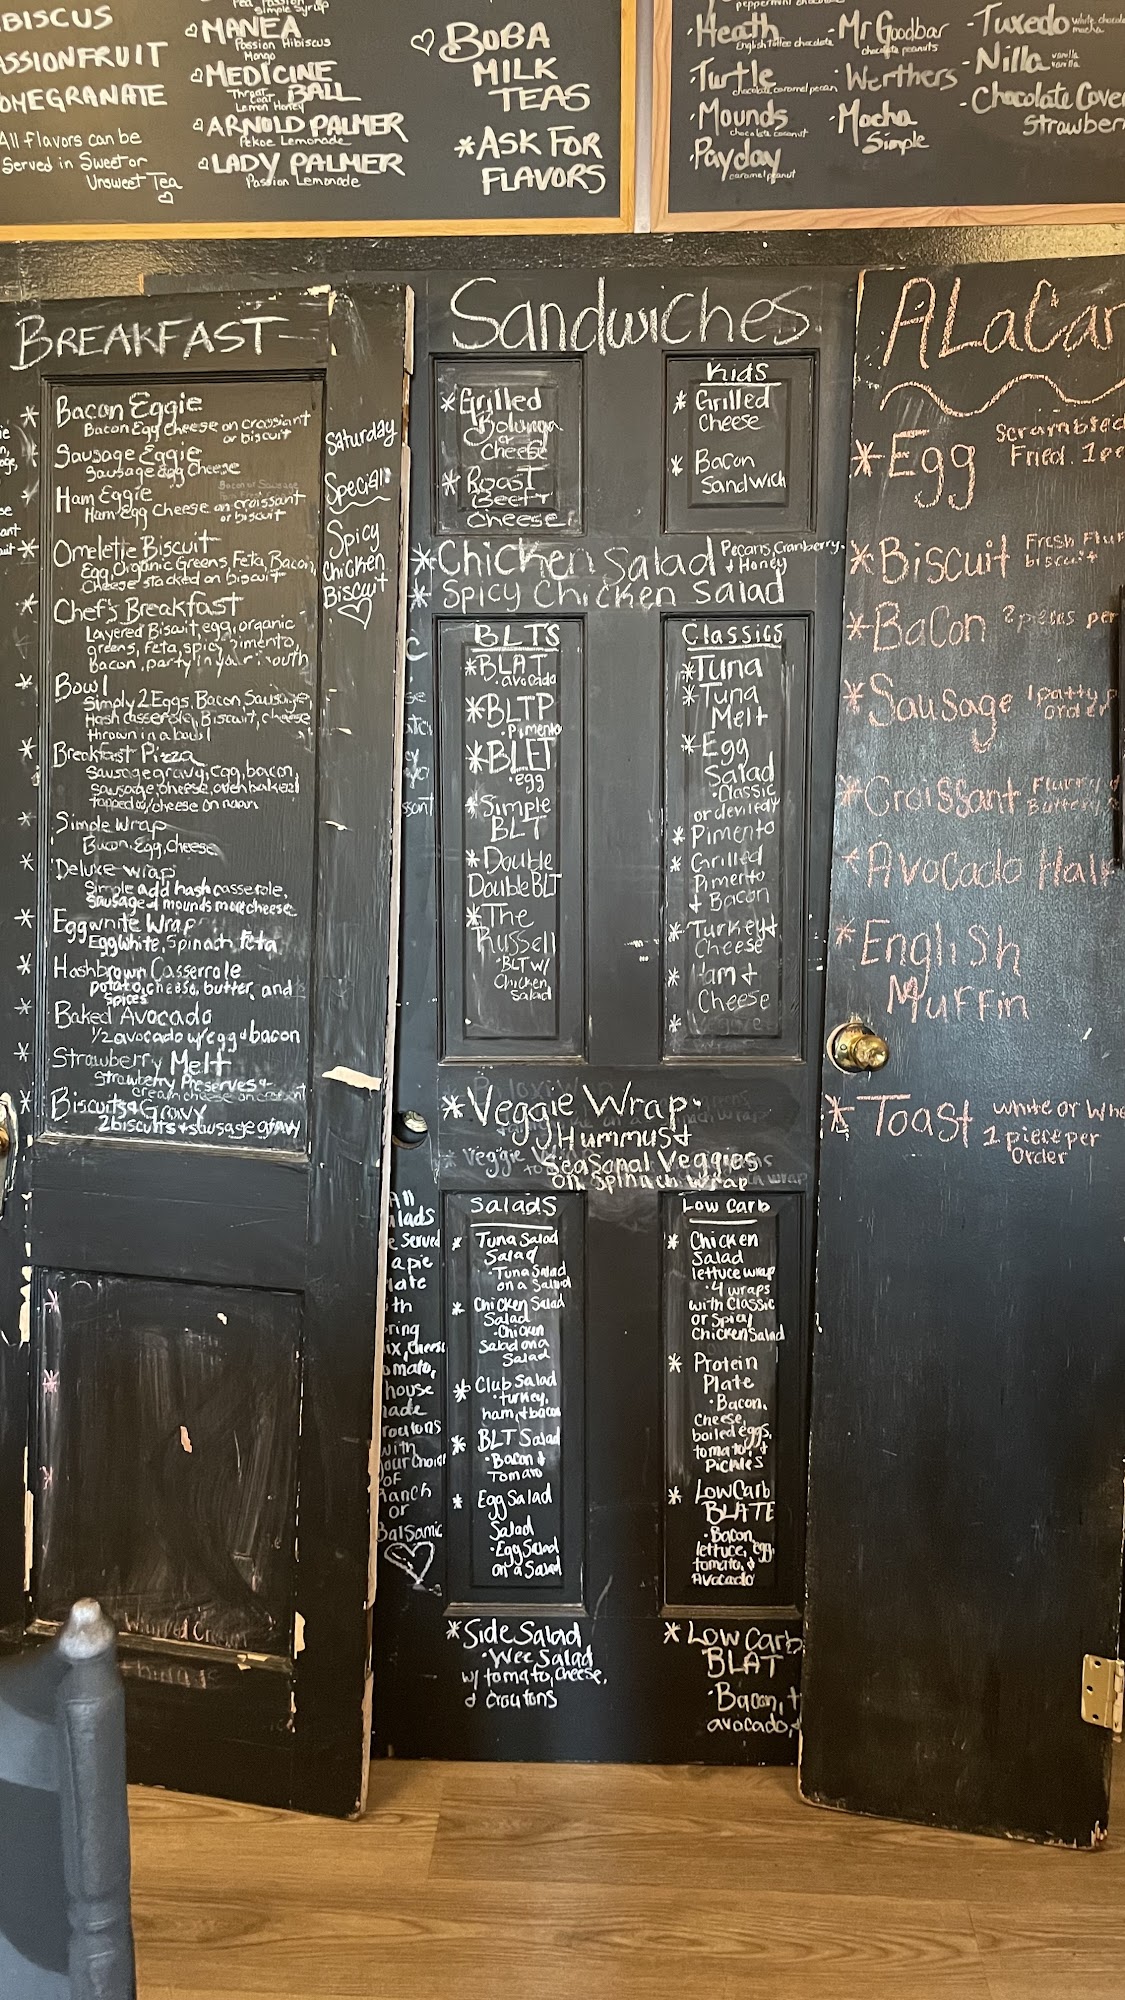 Simple Syrup
MANEA
Passion Hibiscus
Mango
MEDICINE
BALL
Throat
Coat
Lemon Honey
ARNOLD PALMER
Pekoe Lemonade
LADY PALMER
Passion Lemonade
All flavors can be
Served in Sweet or
Unsweet Tea
BOBA
MILK
TEAS
*ASK FOR
FLAVORS
·Heath
English toffee chocolate
·Turtle
chocolate caramel pecan
·Mounds
chocolate coconut
·Payday
caramel peanut
·Mr Goodbar
chocolate peanuts
·Werthers
·Mocha
Simple
-Tuxedo
mocha
-Nilla
vanilla
vanilla
BREAKFAST
* Bacon Eggie
Bacon Egg Cheese on crossiant
or biscuit
Sausage Eggie
Sausage Egg Cheese
Ham Eggie
Ham Egg Cheese on croissant
or biscuit
* Omelette Biscuit
Egg, Organic Greens, Feta, Bacon,
Cheese stacked on biscuit
* Chef's Breakfast
Layered Biscuit, egg, organic
greens, feta, spicy pimento,
bacon, party in your mouth
* Bowl
Simply 2 Eggs, Bacon Sausage,
Hash casserole, Biscuit, cheese
thrown in a bowl
* Breakfast Pizza
Sausage gravy, egg, bacon,
Sausage, cheese, oven baked
topped w/ cheese on naan
* Simple Wrap
Bacon, Egg, Cheese
* Deluxe wrap
Simple add hash casserole,
Sausage & mounds more cheese
* Eggwhite Wrap
Egg White, Spinach Feta
* Hashbrown Casserole
potato, cheese, butter, and
spices
* Baked Avocado
1/2 avocado w/ egg & bacon
* Strawberry Melt
Strawberry Preserves +
cream cheese on croissant
* Biscuits & Gravy
2 biscuits + sausage gravy
Saturday
Special:
Spicy
Chicken
Biscuit
Sandwiches
*Grilled
Bolonga
or
Cheese
* Roast
Beef +
Cheese
Kids
* Grilled
Cheese
* Bacon
Sandwich
*Chicken Salad Pecans, Cranberry,
+ Honey
* Spicy Chicken Salad
BLTS
*BLAT
·avocado
*BLTP
·Pimento
*BLET
·egg
*Simple
BLT
*Double
Double BLT
*The
Russell
·BLT w/
Chicken
Salad
Classics
*Tuna
*Tuna
Melt
*Egg
Salad
·Classic
or deviled
* Pimento
* Grilled
Pimento
+ Bacon
* Turkey +
Cheese
* Ham +
Cheese
*
*Veggie Wrap·
Hummus +
Seasonal Veggies
on Spinach Wrap
Salads
* Tuna Salad
Salad
·Tuna Salad
on a Salad
* Chicken Salad
Salad
·Chicken
Salad on a
Salad
* Club Salad
·turkey,
ham, + bacon
* BLT Salad
·Bacon +
Tomato
* Egg Salad
Salad
·Egg Salad
on a Salad
*Side Salad
·Wee Salad
w/ tomato, cheese,
& croutons
Low Carb
* Chicken
Salad
lettuce wrap
·4 wraps
with Classic
or Spicy
Chicken Salad
* Protein
Plate
·Bacon,
Cheese,
boiled eggs,
tomato, +
Pickles
* Low Carb
BLATE
·Bacon,
lettuce, egg,
tomato, +
Avocado
* Low Carb
BLAT
·Bacon, +
avocado, +
*Egg
*Biscuit
*Bacon
*Sausage 1 patty
order
*Croissant
*Avocado Half
*English
Muffin
*Toast White or
1 piece per
Order